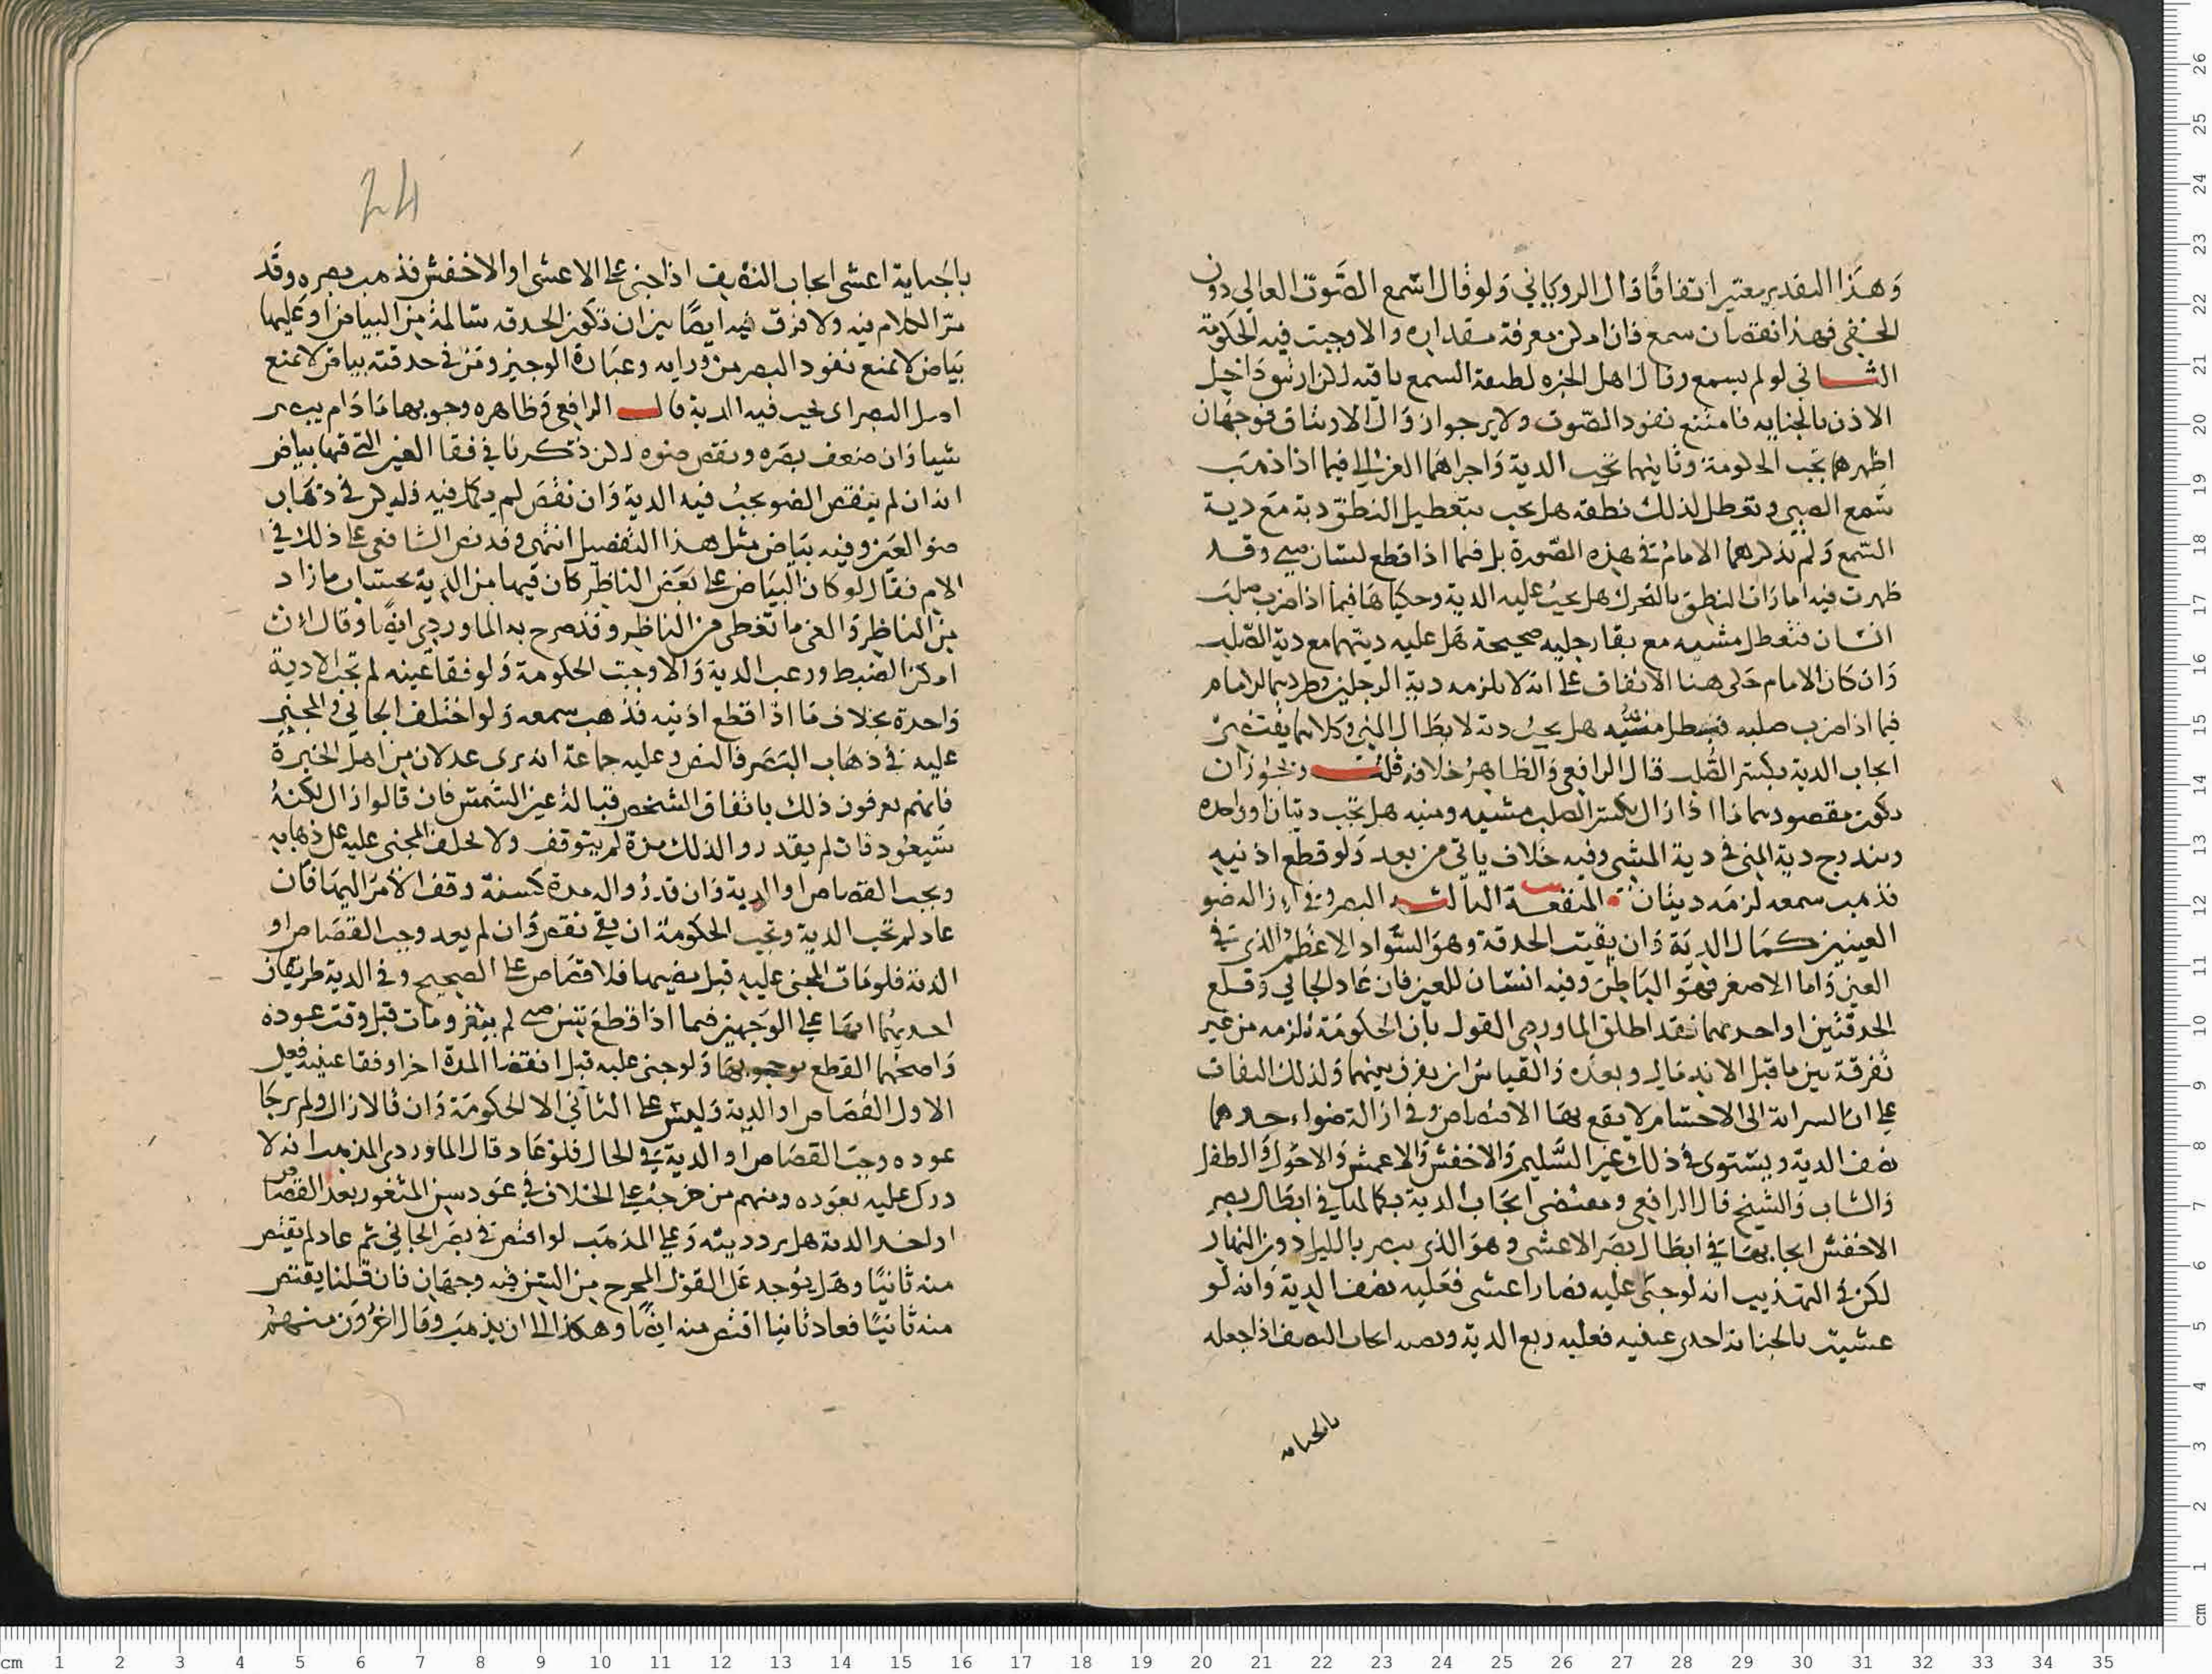 وهذا التقدير معتبر اتفاقا قال الروياني ولو قال اسمع الصوت العالي دون
الخفي فهذا نقصان سمع فان امكن معرفة مقداره والا وجبت فيه الحكومة
الثاني لو لم يسمع وقال اهل الخبره لطيفة السمع باقيه لكن ارتتق داخل
الاذن بالجنايه فامتنع نفود الصوت ولا يرجوا زوال الارتتاق فوجهان
اظهرهما تجب الحكومة وثانيهما تجب الدية واجراهما الغزالي فيما اذا ذهب
سمع الصبي وتعطل لذلك نطقه هل يجب بتعطيل النطق دية مع دية
السمع ولم يذكرهما الامام في هذه الصورة بل فيما اذا قطع لسان صبي وقد
ظهرت فيه امارات النطق بالتحرك هل يجب عليه الدية وحكياها فيما اذا ضرب صلب
انسان فتعطل مشيه مع بقا رجليه صحيحة هل عليه ديتهما مع دية الصلب
وان كان الامام حكى هنا الاتفاق على انه لا يلزمه دية الرجلين وطردهما الامام
فيما اذا ضرب صلبه فبطل منيه هل يجب دية لابطال المني وكلامهما يقتضي
ايجاب الدية بكسر الصلب قال الرافعي والظاهر خلافه قلت ويجوز ان
يكون مقصودهما ما اذا زال بكسر الصلب مشيه ومنيه هل تجب ديتان او واحده
ويندرج دية المني في دية المشي وفيه خلاف ياتي من بعد ولو قطع اذنيه
فذهب سمعه لزمه ديتان المنفعة الثالثه البصر وفي ازاله ضو
العينين كمال الدية وان بقيت الحدقة وهو السواد الاعظم الذي في
العين واما الاصغر فهو الباطن وفيه انسان للعين فان عاد الجاني وقلع
الحدقتين او احديهما فقد اطلق الماوردي القول بان الحكومة تلزمه من غير
تفرقة بين ما قبل الاندمال وبعده والقياس ان يفرق بينهما ولذلك التفات
على ان السراية الى الاجسام لا يقع بها الاقتصاص وفي ازالة ضوا احدهما
نصف الدية ويستوى في ذلك عين السليم والاخفش والاعمش والاحول والطفل
والشاب والشيخ قال الرافعي ومقتضى ايجاب الدية بكمالها في ابطال بصر
الاخفش ايجابها في ابطال بصر الاعشى وهو الذي يبصر بالليل دون النهار
لكن في التهذيب انه لو جنى عليه فصار اعشى فعليه نصف الدية وانه لو
عشيت بالجناية احدى عينيه فعليه ربع الدية وقصد ايجاب النصف اذا جعله
بالجنايه
24
بالجناية اعشى ايجاب النصف اذا جنى على الاعشى او الاخفش فذهب بصره وقد
مر الكلام فيه ولا فرق فيه ايضا بين ان تكون الحدقه سالمة من البياض او عليها
بياض لا يمنع نفود البصر من ورايه وعبارة الوجيز ومن في حدقته بياض لا يمنع
اصل البصر اى يجب فيه الدية قال الرافعي وظاهره وجوبها ما دام يبصر
شيا وان ضعف بصره ونقص ضوه لكن ذكرنا في فقا العين التي فيها بياض
انه ان لم ينقص الضو يجب فيه الدية وان نقص لم يكمل فيه فليكن في ذهاب
ضو العين وفيه بياض مثل هذا التفصيل انتهى وقد نص الشافعي على ذلك في
الام فقال لو كان البياض على بعض الناظر كان فيها من الدية بحساب ما زاد
من الناظر والغى ما تغطى من الناظر وقد صرح به الماوردي ايضا وقال ان
امكن الضبط وزعت الدية والا وجبت الحكومة ولو فقا عينه لم تجب الا دية
واحدة بخلاف ما اذا قطع اذنيه فذهب سمعه ولو اختلف الجاني والمجني
عليه في ذهاب البصر فالنص وعليه جماعة انه يرى عدلان من اهل الخبرة
فانهم يعرفون ذلك باتفاق الشخص قبالة عين الشمس فان قالوا زال لكنه
سيعود فان لم يقدروا لذلك مدة لم يتوقف ولا يحلف المجني عليه على ذهابه
ويجب القصاص او الدية وان قدروا له مدة كسنة وقف الامر اليها فان
عاد لم تجب الدية وتجب الحكومة ان بقي نقص وان لم يعد وجب القصاص او
الدية فلو مات المجني عليه قبل مضيها فلا قصاص على الصحيح وفي الدية طريقان
احديهما انها على الوجهين فيما اذا قطع سن صبي لم يثغر ومات قبل وقت عوده
واصحهما القطع بوجوبها ولو جنى عليه قبل انقضا المدة اخر او فقا عينيه فعلى
الاول القصاص او الدية وليس على الثاني الا الحكومة وان قالا زال ولم يرجا
عوده وجب القصاص او الدية في الحال فلو عاد قال الماوردي المذهب انه لا
درك عليه بعوده ومنهم من خرجه على الخلاف في عود سن المثغور بعد القصاص
او اخذ الدية هل يرد ديته وعلى المذهب لو اقتص في بصر الجاني ثم عاد لم يقتص
منه ثانيا وهل يتوجه على القول المخرج من السن فيه وجهان فان قلنا يقتص
منه ثانيا فعاد ثانيا اقتص منه ايضا وهكذا الى ان يذهب وقال اخرون منهم